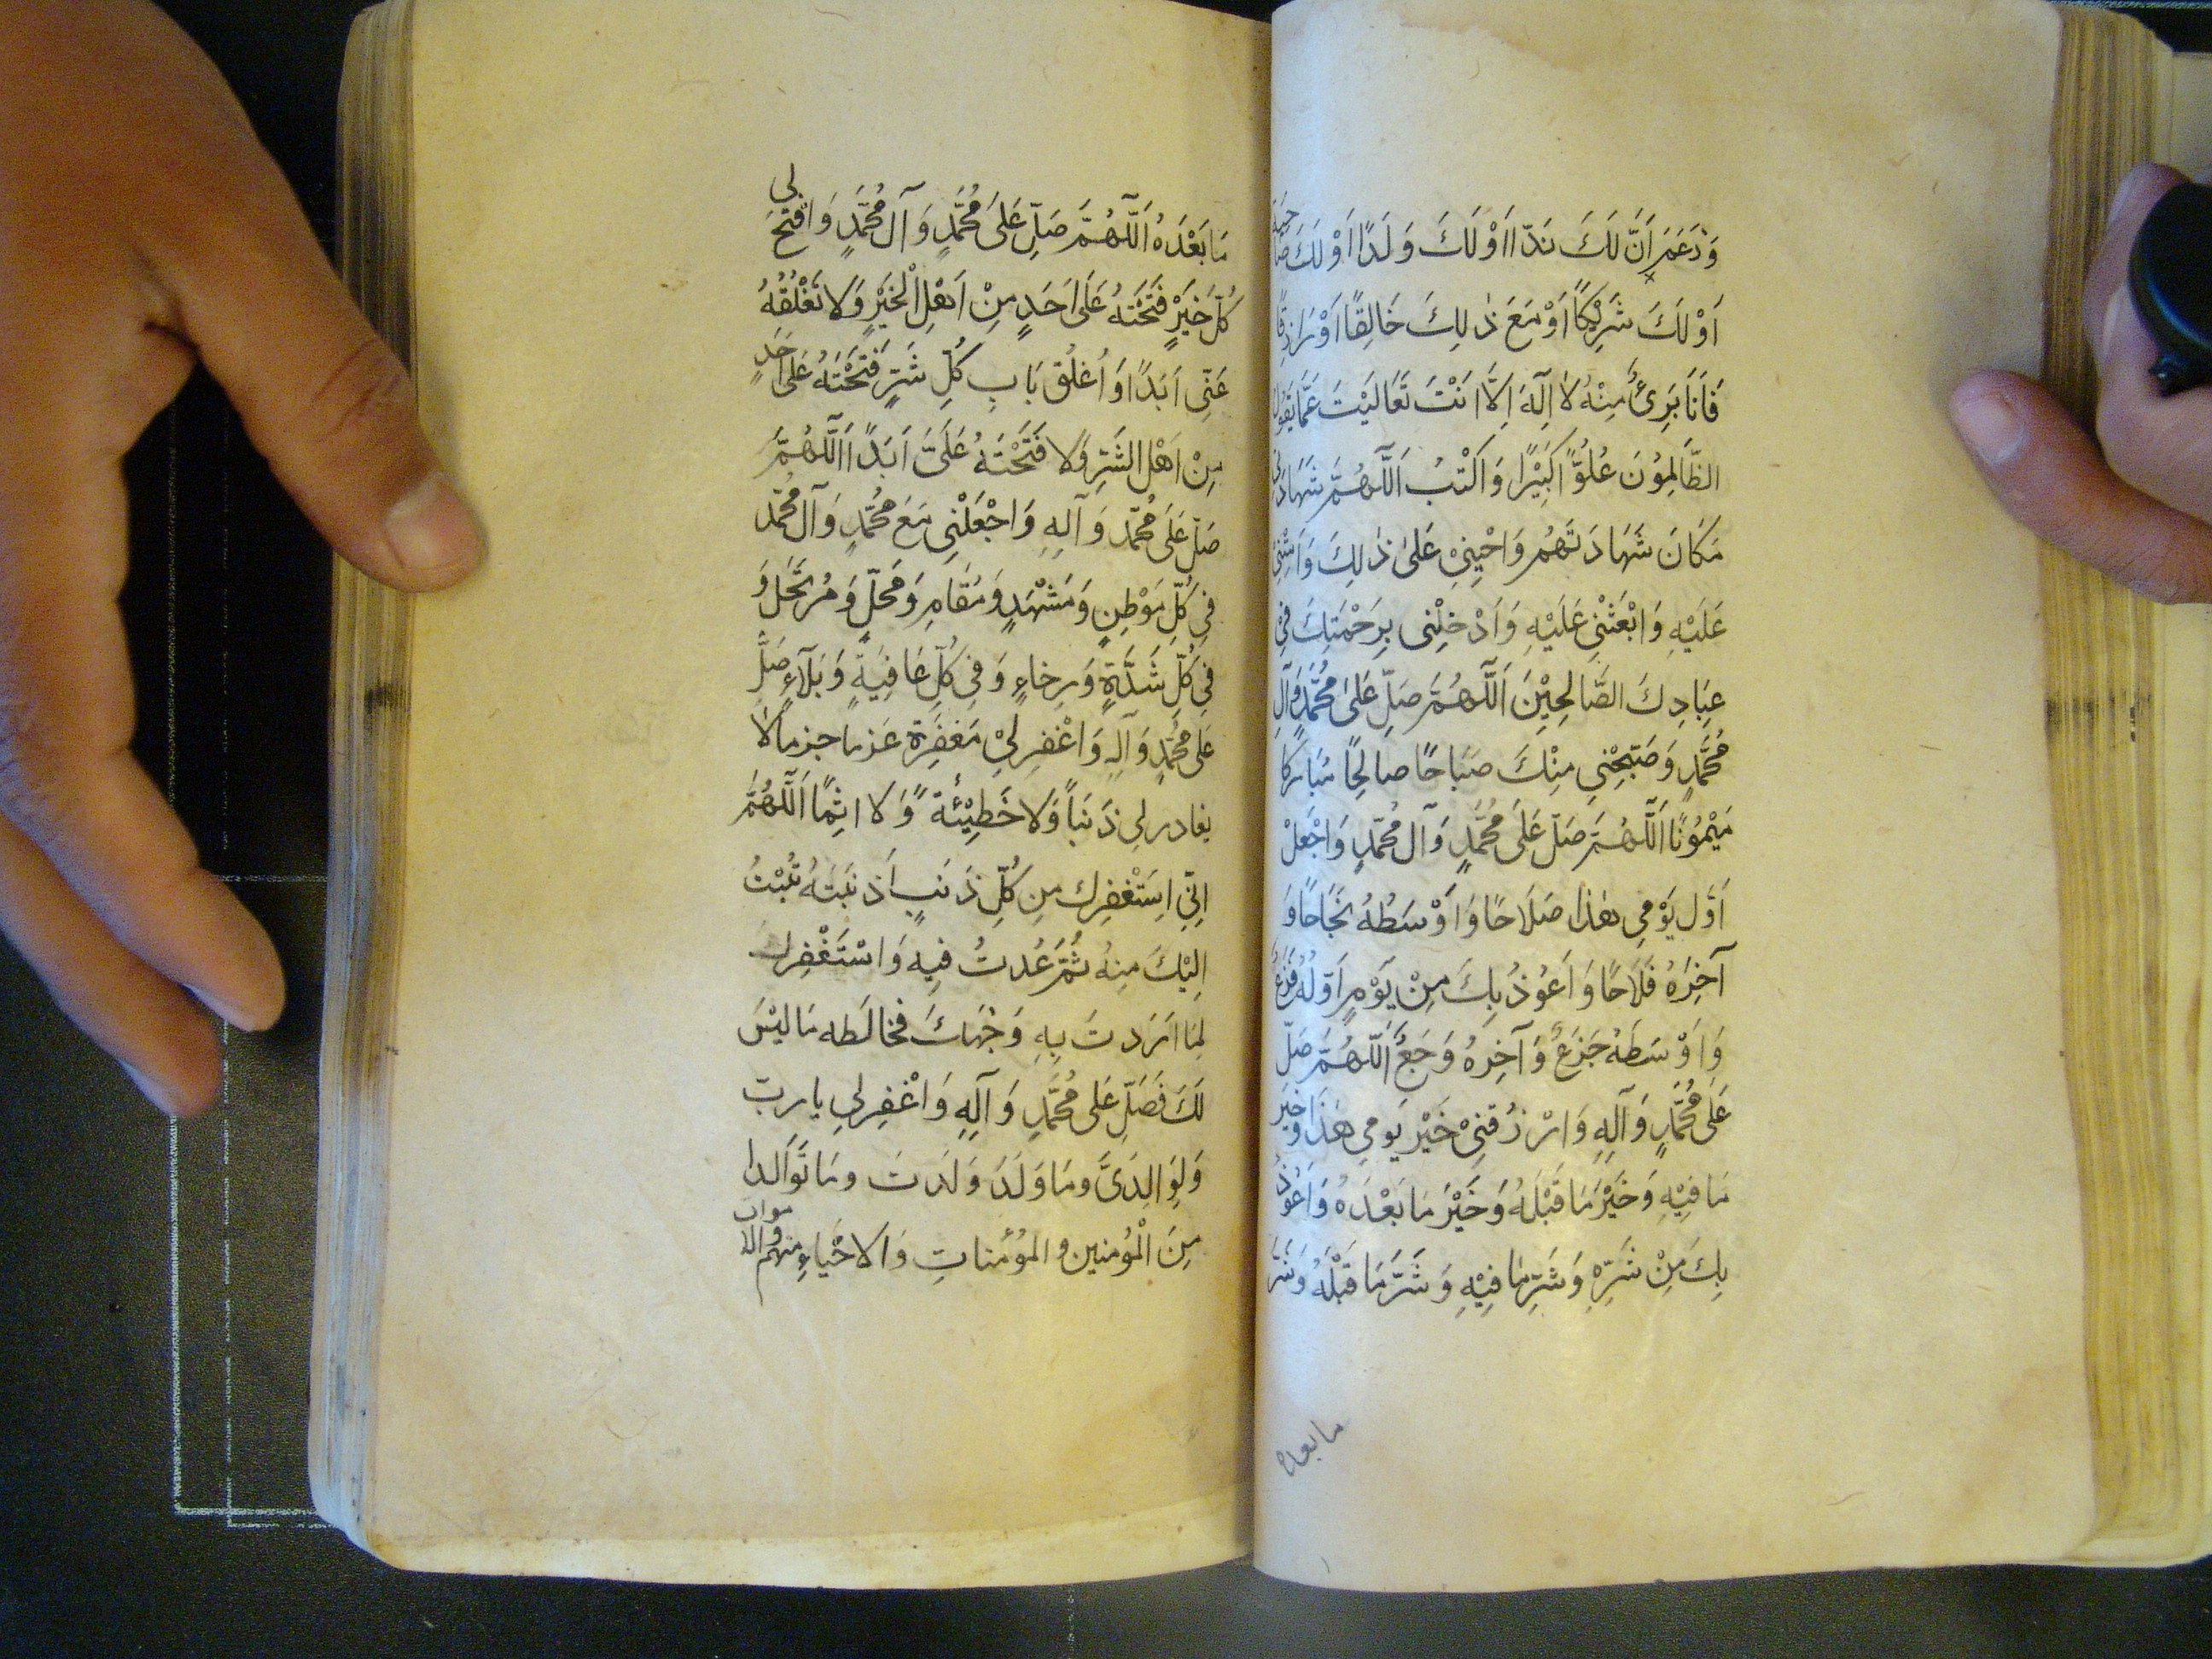 وَزَعَمَ اَنَّ لَكَ نِدًّا اَوْ لَكَ وَلَدًا اَوْ لَكَ صَاحِبَة
اَوْ لَكَ شَرِيْكًا اَوْ مَعَ ذٰلِكَ خَالِقًا اَوْ رَازِقًا
فَاَنَا بَرِئٌ مِنْهُ لَا اِلٰهَ اِلَّا اَنْتَ تَعَالَيْتَ عَمَّا يَقُولُ
الظَّالِمُوْنَ عُلُوًّا كَبِيْرًا وَاَكْتُبْ اَللّٰهُمَّ شَهَادَتِي
مَكَانَ شَهَادَتَهُمْ وَاحْيِنِيْ عَلىٰ ذٰلِكَ وَاَمِتْنِي
عَلَيْهِ وَابْعَثْنِي عَلَيْهِ وَاَدْخِلْنِي بِرَحْمَتِكَ فِيْ
عِبَادِكَ الصَّالِحِيْنَ اَللّٰهُمَّ صَلِّ عَلىٰ مُحَمَّدٍ وَآلِ
مُحَمَّدٍ وَصَبِّحْنِي مِنْكَ صَبَاحًا صالِحًا مُبَارَكا
مَيْمُوْنًا اَللّٰهُمَّ صَلِّ عَلىَ مُحَمَّدٍ وَآل مُحَمَّدٍ وَاجْعَلْ
اَوَّل يَوْمِي هٰذا صَلَاحًا وَاَوْسَطُهُ نَجَاحًا وَ
آخِرَهُ فَلَاحًا وَاَعُوْذُ بِكَ مِنْ يَوْمٍ اَوَّلُهُ فَزَعٌ
وَاَوْسَطَهُ جَزَعٌ وَآخِرَهُ وَجَعٌ اَللّٰهُمَّ صَلِّ
عَلَى مُحَمَّدٍ وَآلِهِ وَارْزُقْنِيْ خَيْر يَومي هٰذَا وَخَيْرَ
مَا فِيْهِ وَخَيْرَ مَا قَبْلَهُ وَخَيْرَ مَا بَعْدَهُ وَاَعُوْذُ
بِكَ مِنْ شَرِّهِ وَشَرِّ مَا فِيْهِ وَشَرَّ مَا قَبْلَهُ وَشَرَّ
ما بعده
مَا بَعْدَهُ اَللّٰهُمَّ صَلِّ عَلىَ مُحَمَّدٍ وَآل مُحَمَّدٍ وَافْتَحْ لي
كُلَّ خَيْرٍ فَتَحْتَهُ عَلَى اَحَدٍ مِنْ اَهْلِ الْخَيْرٍ وَلَا تَغْلُقُهُ
عَنّي اَبَدًا وَاُغلُق بَابَ كُلِّ شَرٍّ فَتَحْتَهُ عَلَى اَحَدٍ
مِنْ اَهْلِ الشَّرِّ وَلَا فَتَحْتَهُ عَلَىَّ اَبَدًا اَللّٰهُمَّ
صَلّ عَلَى مُحَمَّد وَآلِهِ وَاجْعَلْنِي مَعَ مُحَمَّدٍ وَآل مُحَمَّد
فِي كُلِّ مَوْطِنٍ وَمَشْهَدٍ وَمُقَامٍ وَمَحَلٍّ وَمُرتَحَلٍ وَ
فِي كُلِّ شَدَّةٍ وَرِخاءٍ وَفِي كُلِّ عَافِيَةٍ وَبَلآءٍ صَلِّ
عَلَى مُحَمَّدٍ وَآلِهِ وَاغْفِر لِيْ مَغفِرَة عَزما جزما لَا
يغادر لي ذَنبَاً وَلَا خَطِيْئَةً وَلا اثِمًا اَللّٰهُمَّ
اِنّي اسِتَغْفِرك مِن كُلِّ ذَنبٍ اَذنَبتَهُ تُبْتُ
اِلَيْكَ مِنهُ ثُمَّ عُدتُ فيهِ وَاسْتَغْفِرك
لِمَا اَرَدتَ بِهِ وَجْهَكَ فخالَطه مَا لَيْسَ
لَكَ فَصَلِّ عَلى مُحَمَّدٍ وَآلِهِ وَاغْفِر لي يا ربّ
وَلِوَالِدَىَّ وما وَلَدَ وَلَدَتَ وما تَوَالَدا
مِنَ الْمُؤمنِين والمؤُمنَاتِ وَالاحْيَاءِ مِنهُم والاموات